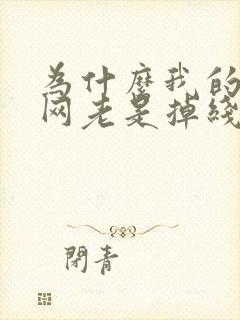 为什麼我的
网老是掉綫
閉青